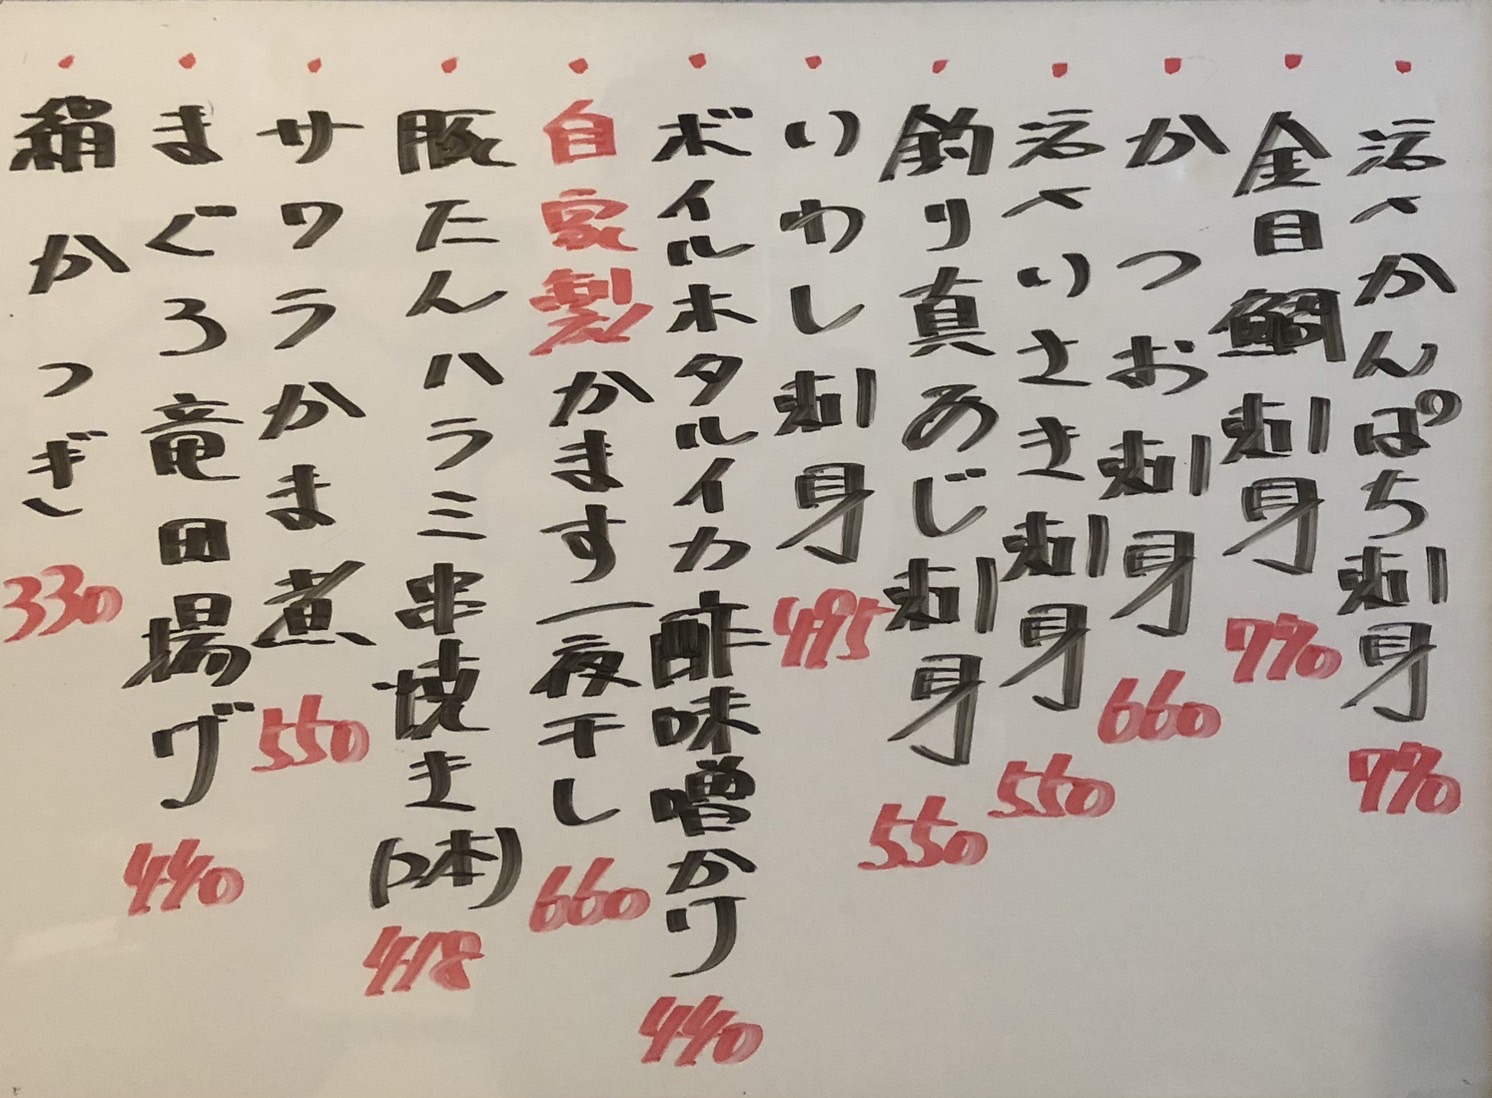 ・活〆かんぱち刺身 770
・金目鯛刺身 770
・かつお刺身 660
・活〆いさき刺身 550
・釣り真あじ刺身 550
・いわし刺身 495
・ボイルホタルイカ酢味噌かけ 440
・自家製かます一夜干し 660
・豚たんハラミ串焼き(2本) 418
・サワラかま煮 550
・まぐろ竜田揚げ 440
・絹かつぎ 330